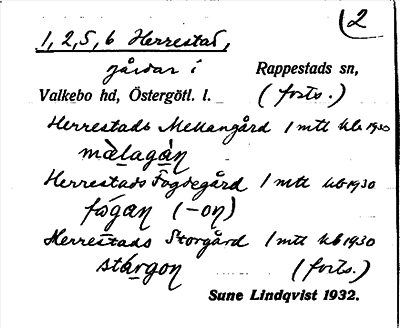 2
1, 2, 5, 6 Herrestad,
gårdar i Rappestads sn,
Valkebo hd, Östergötl. l. (forts.)
Herrestads Mellangård 1 mtl kb 1930
mèlagàn
Herrestads Fogdegård 1 mtl kb 1930
fógan (-on)
Herrestads Storgård 1 mtl kb 1930
stárgon (forts.)
Sune Lindqvist 1932.